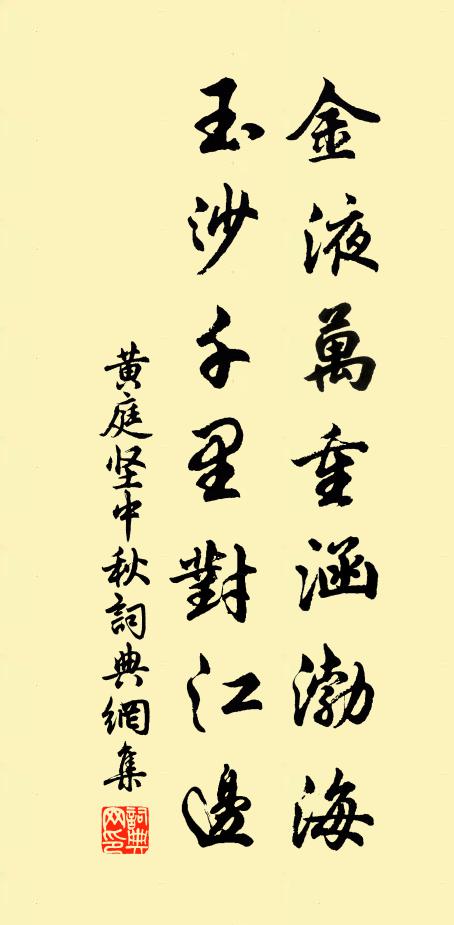 金液萬重涵渤海
玉沙千里對江邊
黄庭坚中秋詞典網集
詞典网印